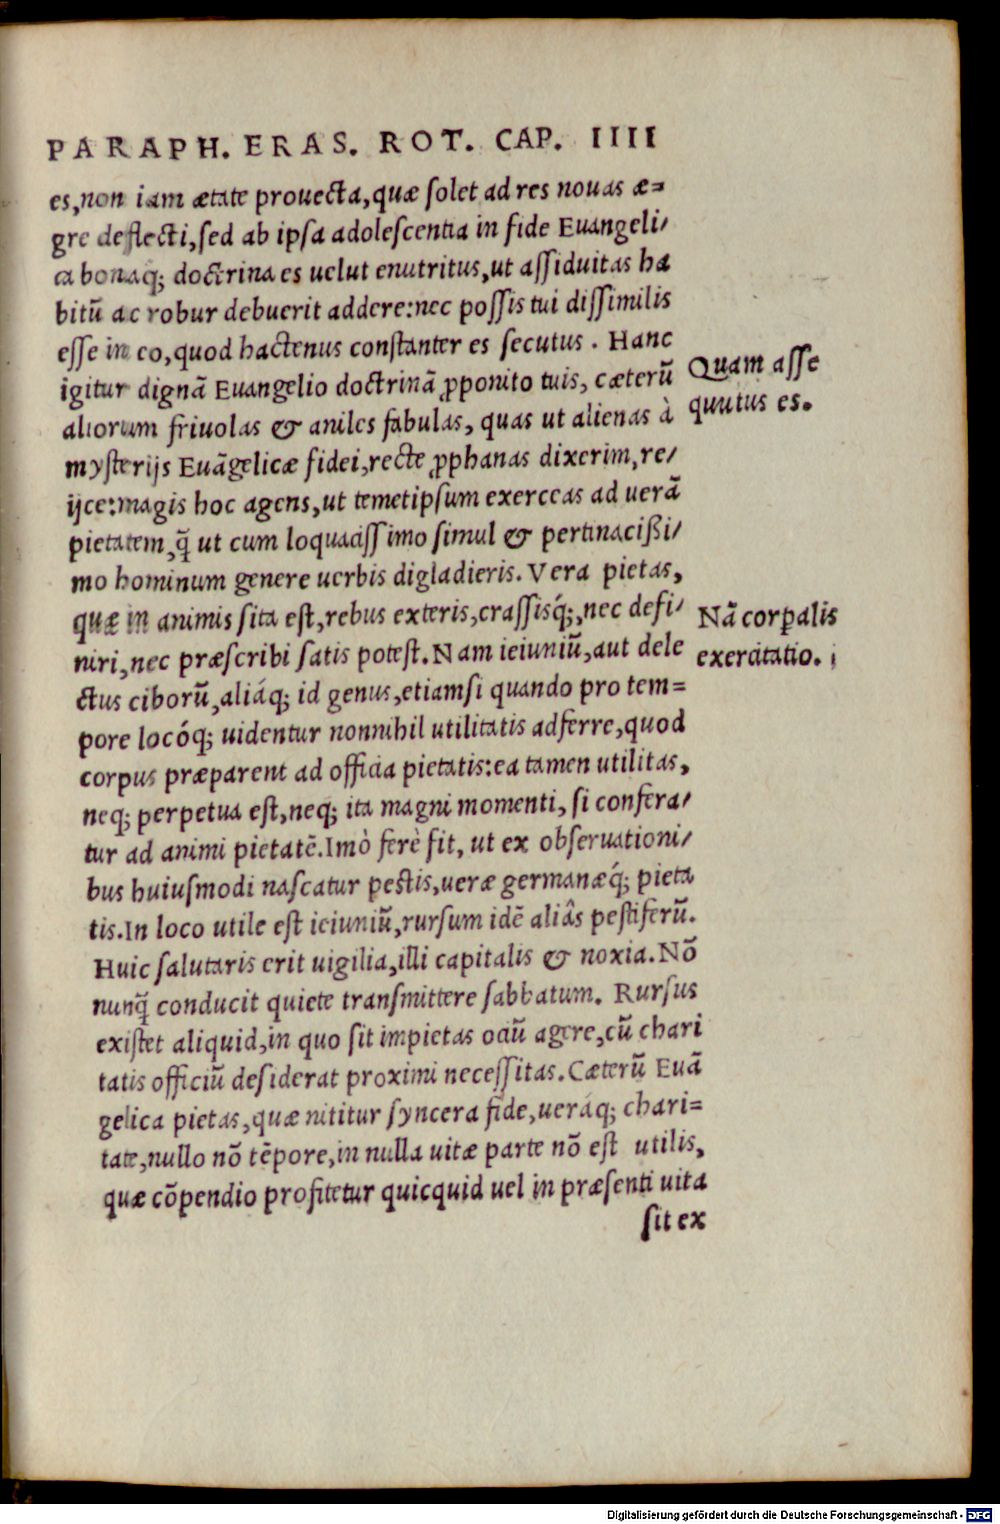 PARAPH. ERAS. ROT. CAP. IIII
es,non iam ætate prouecta,quæ ſolet ad res nouas æ=
gre deflecti,ſed ab ipſa adoleſcentia in fide Euangeli/
ca bonaq; doctrina es uelut enutritus,ut aſſiduitas ha
bitū ac robur debuerit addere:nec poſſis tui diſſimilis
eſſe in eo,quod hactenus conſtanter es ſecutus . Hanc
igitur dignā Euangelio doctrinā ꝓponito tuis, cæterū
aliorum friuolas & aniles fabulas, quas ut alienas à
myſterijs Euāgelicæ fidei,recte ꝓphanas dixerim,re/
ijce:magis hoc agens,ut temetipſum exerceas ad uerā
pietatem,q̄ ut cum loquaciſſimo ſimul & pertinacißi/
mo hominum genere uerbis digladieris. Vera pietas,
quæ in animis ſita eſt,rebus exteris,craſſisq́;,nec defi/
niri,nec præſcribi ſatis poteſt. Nam ieiuniū,aut dele
ctus ciborū,aliáq; id genus,etiamſi quando pro tem=
pore locóq; uidentur nonnihil utilitatis adferre,quod
corpus præparent ad officia pietatis:ea tamen utilitas,
neq; perpetua eſt,neq; ita magni momenti, ſi confera/
tur ad animi pietatē.Imò ferè fit, ut ex obſeruationi/
bus huiuſmodi naſcatur peſtis,ueræ germanæq́; pieta
tis.In loco utile eſt ieiuniū,rurſum idē aliâs peſtiferū.
Huic ſalutaris erit uigilia,illi capitalis & noxia.Nō
nunq̄ conducit quiete tranſmittere ſabbatum. Rurſus
exiſtet aliquid,in quo ſit impietas ociū agere,cū chari
tatis officiū deſiderat proximi neceſſitas.Cæterū Euā
gelica pietas,quæ nititur ſyncera fide,ueráq; chari=
tate,nullo nō tēpore,in nulla uitæ parte nō eſt utilis,
quæ cōpendio profitetur quicquid uel in præſenti uita
ſit ex
Quam aſſe
quutus es.
Nā corꝑalis
exercitatio.
Digitalisierung gefördert durch die Deutsche Forschungsgemeinschaft - DFG